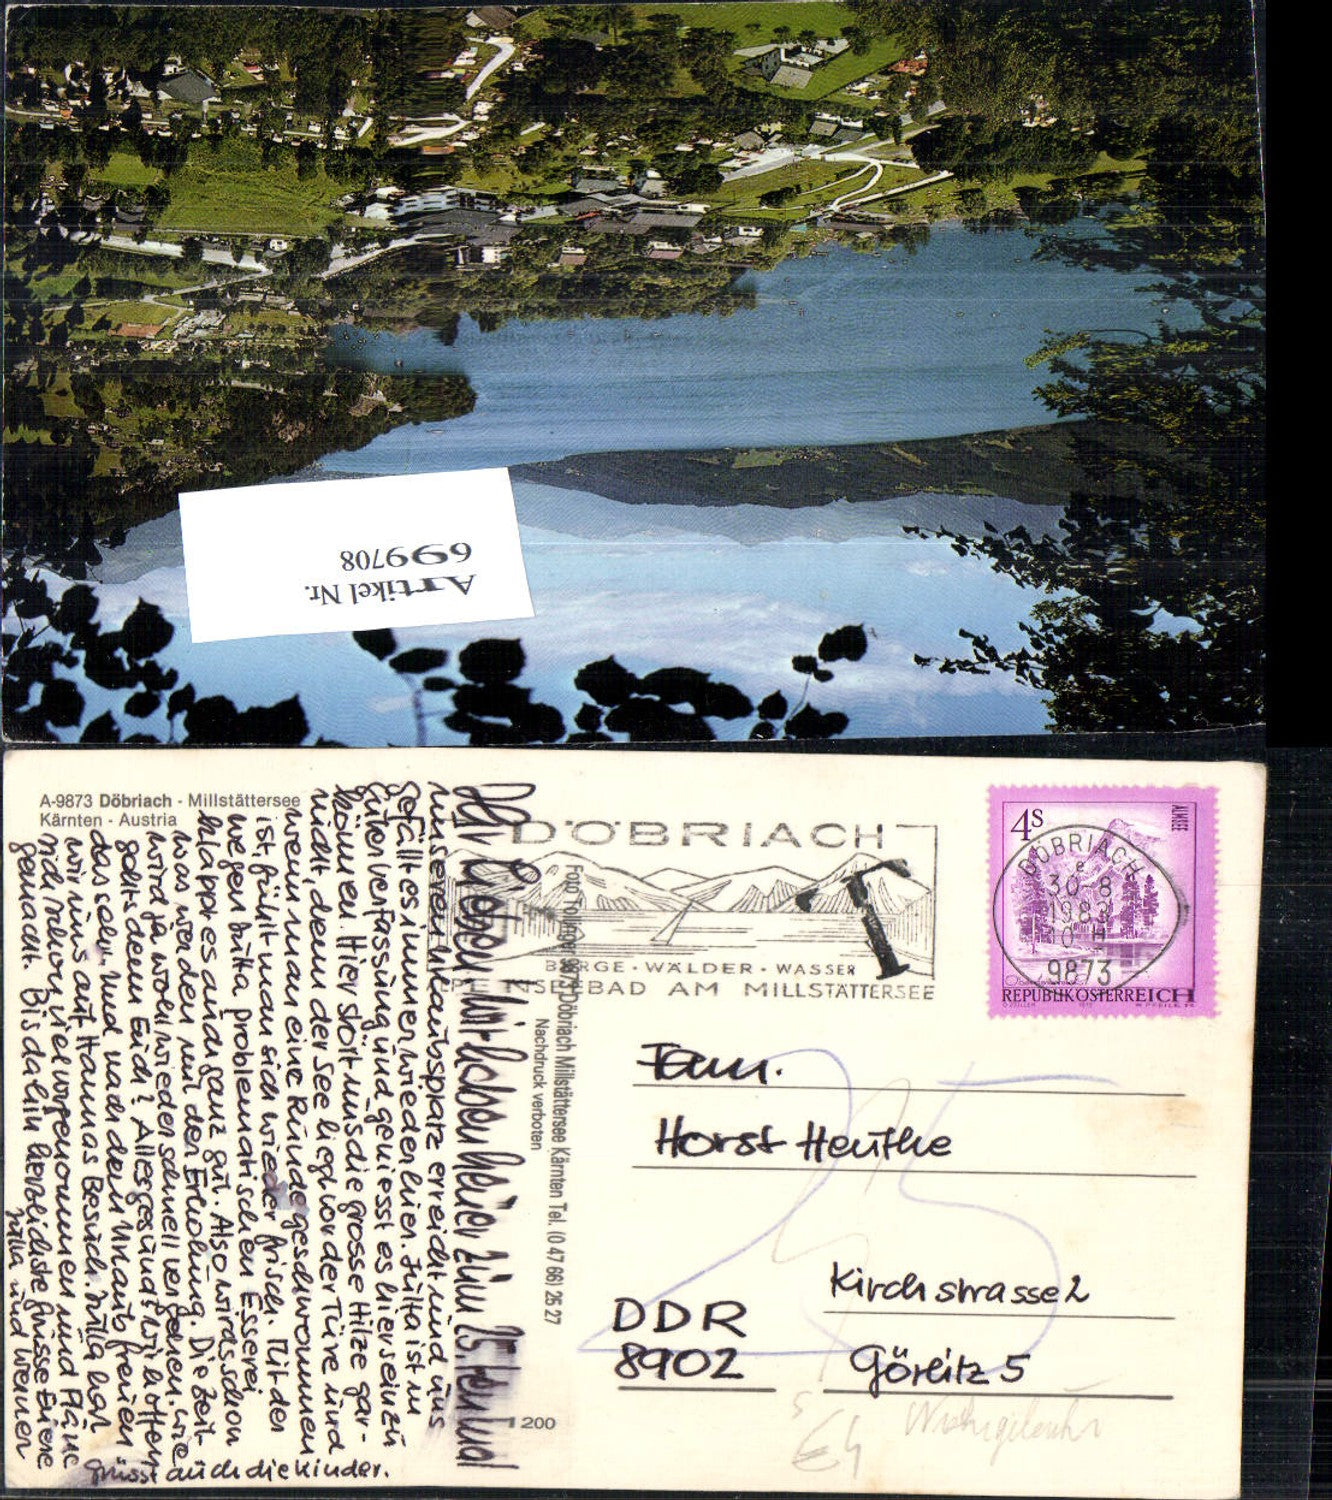 Artikel Nr.
699708
A-9873 Döbriach - Millstättersee
Kärnten - Austria
DÖBRIACH
BERGE · WÄLDER · WASSER
AM MILLSTÄTTERSEE
T
4S
ALMSEE
DÖBRIACH
e
30-8
9873
REPUBLIK ÖSTERREICH
Foto Tollinger 9873 Döbriach Millstättersee Kärnten Tel. (0 47 66) 26 27
Nachdruck verboten
200
Ihr Lieben! Wir haben heuer zum 25. ten mal
unseren Urlaubsplatz erreicht und uns
gefällt es immer wieder hier. Jutta ist in
guter Verfassung und geniesst es hier sein zu
können. Hier stört uns die grosse Hitze gar-
nicht, denn der See liegt vor der Türe und
wenn man eine Runde geschwommen
ist, fühlt man sich wieder frisch. Mit der
wegen Jutta problematischen Esserei
klappt es auch ganz gut. Also wird's schon
was werden mit der Erholung. Die Zeit
wird ja wohl wieder schnell vergehen. Wie
geht's denn Euch? Alles gesund? Wir hoffen
das sehr. Und nach dem Urlaub freuen
wir uns auf Hannas Besuch. Jutta hat
sich schon viel vorgenommen und Pläne
gemacht. Bis dahin herzlichste Grüsse Eure
Jutta und Werner
grüsst auch die Kinder.
Fam.
Horst Heuthe
Kirchstrasse 2
DDR
8902
Görlitz 5
25